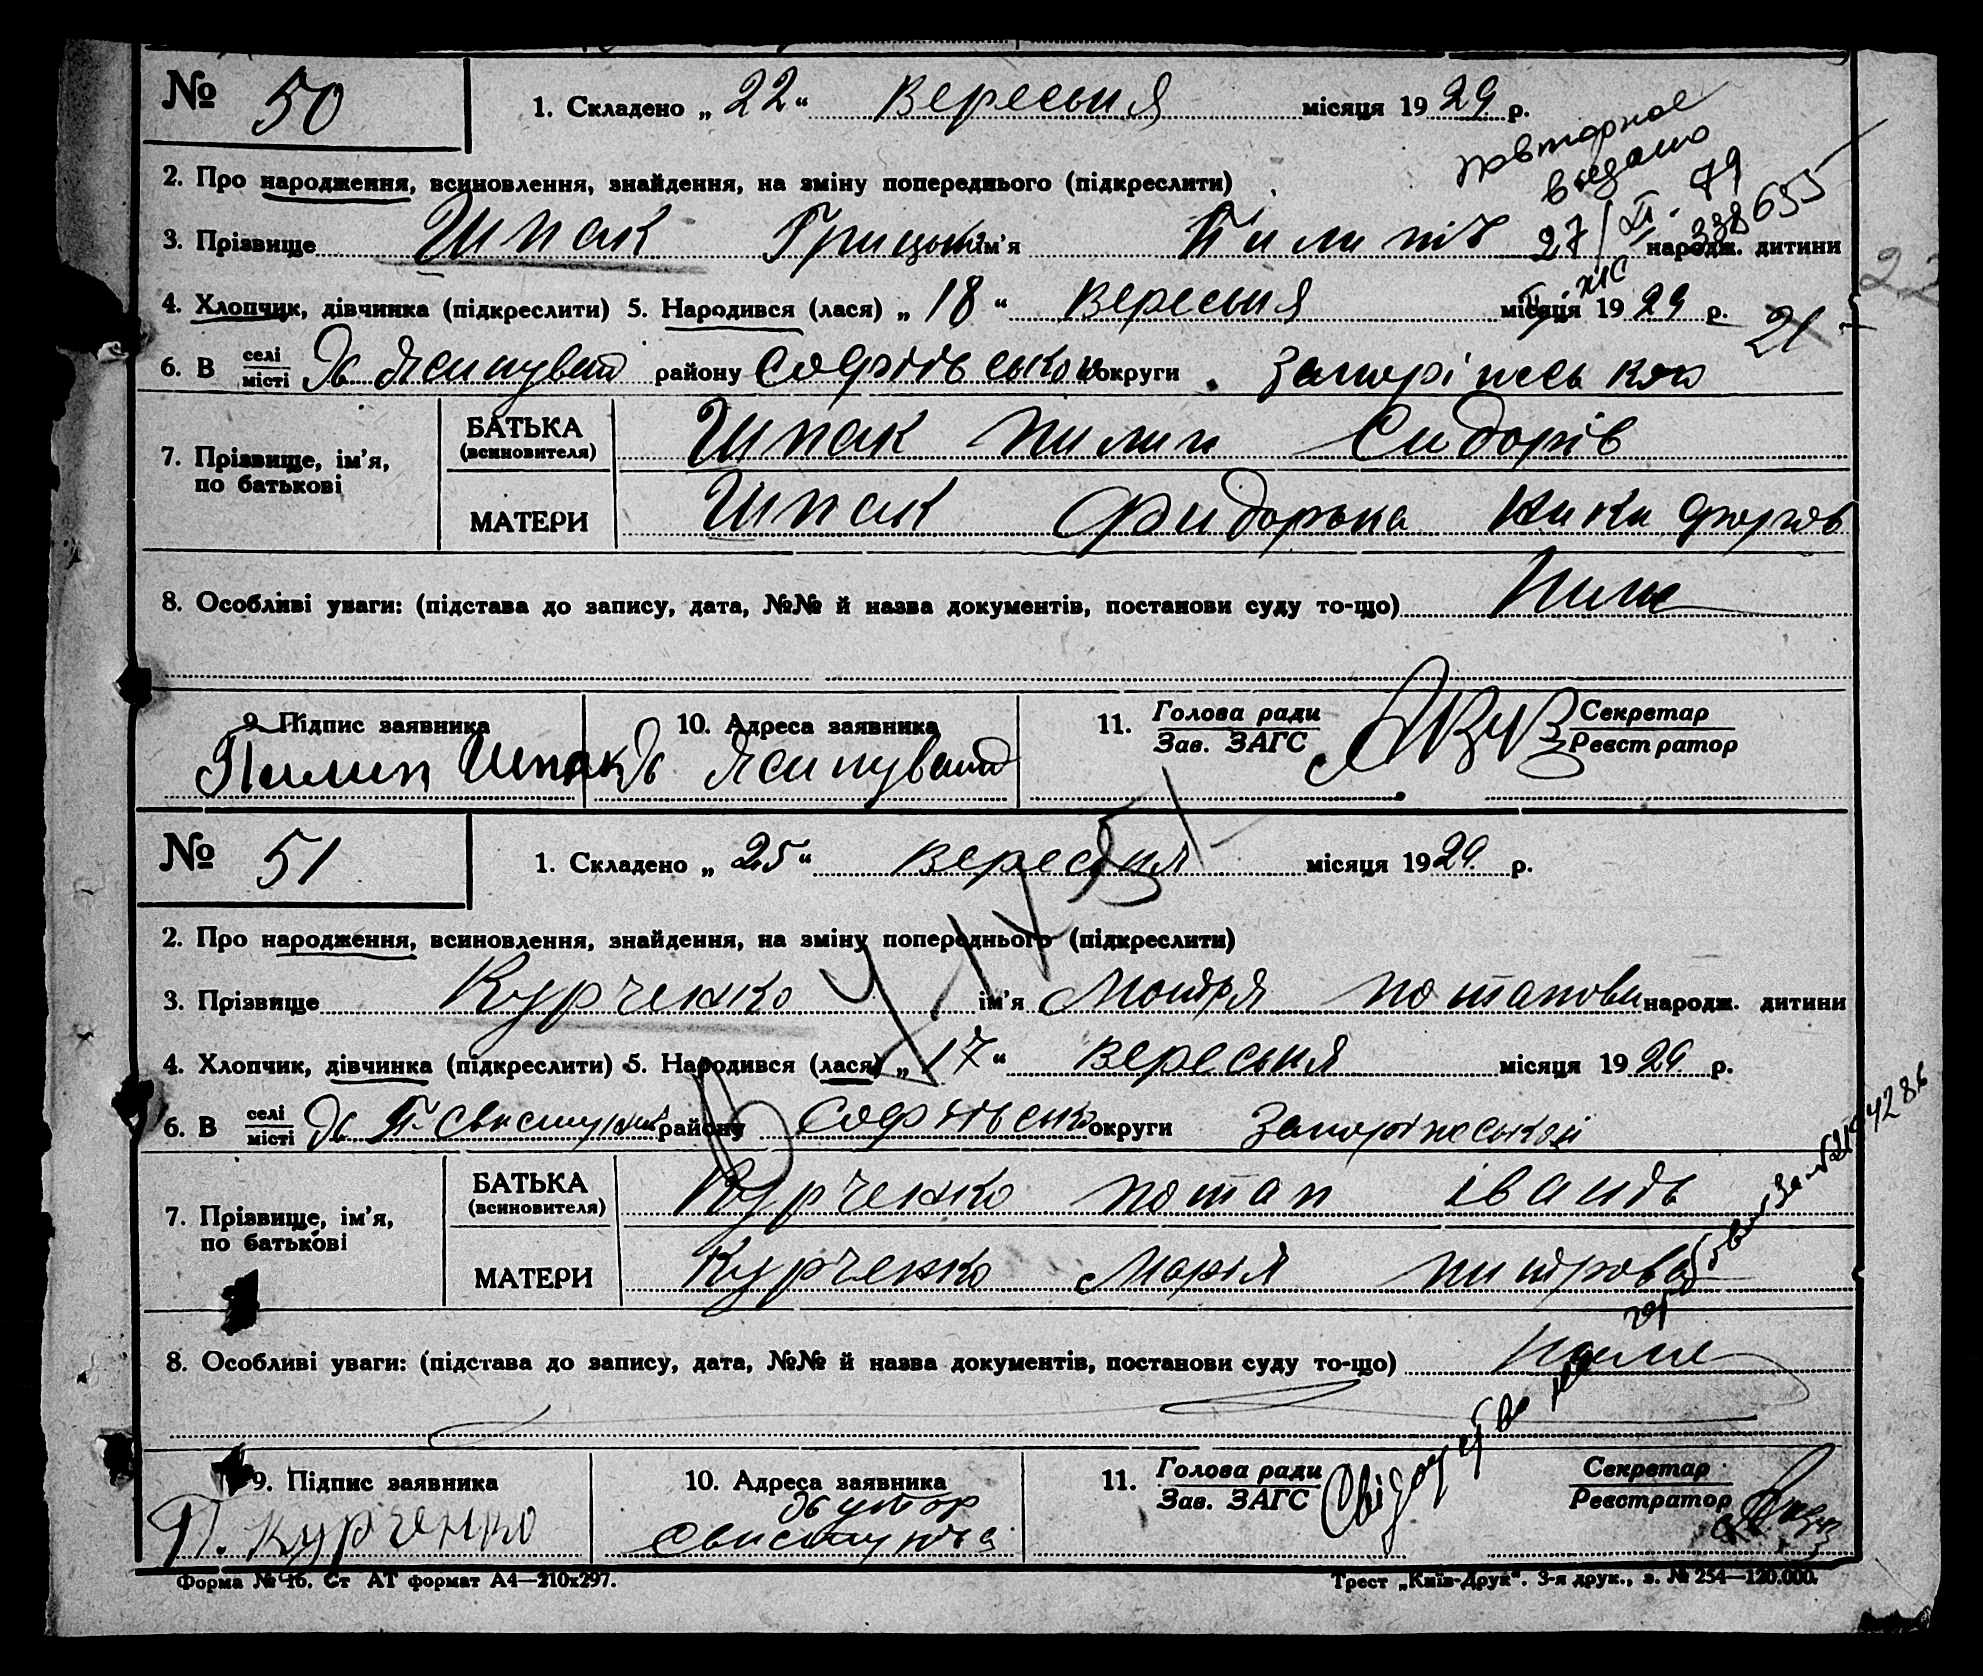 № 50 1. Складено „ 22 “ Вересьня місяця 1929 р.
Повторное
выдано
27/XI. 79
338655
2. Про народження, всиновлення, знайдення, на зміну попереднього (підкреслити)
3. Прізвище Шпак Грицько ім’я Пилипів народж. дитини
4. Хлопчик, дівчинка (підкреслити) 5. Народився (лася) „ 18 “ Вересьня місяця 1929 р.
21
22
6. В селі/місті Ясинуват району Софіівською округи Запоріжською
7. Прізвище, ім’я, по батькові БАТЬКА (всиновителя) Шпак Пилип Сидорів
МАТЕРИ Шпак Фидорька Никифорів
8. Особливі уваги: (підстава до запису, дата, №№ й назва документів, постанови суду то-що)
9. Підпис заявника 10. Адреса заявника 11. Голова ради/Зав. ЗАГС Секретар/Реєстратор
Пилип Шпак Ясинуват
№ 51 1. Складено „ 25 “ Вересьня місяця 1929 р.
2. Про народження, всиновлення, знайдення, на зміну попереднього (підкреслити)
3. Прізвище Курченко ім’я Мотря Потапови народж. дитини
4. Хлопчик, дівчинка (підкреслити) 5. Народився (лася) „ 17 “ Вересьня місяця 1929 р.
6. В селі/місті району Софіівськ округи Запоріжської
7. Прізвище, ім’я, по батькові БАТЬКА (всиновителя) Курченко Потап
МАТЕРИ Курченко Марія Питрова
8. Особливі уваги: (підстава до запису, дата, №№ й назва документів, постанови суду то-що)
9. Підпис заявника 10. Адреса заявника 11. Голова ради/Зав. ЗАГС Секретар/Реєстратор
П. Курченко
Форма № 16. Ст АТ формат А4—210х297. Трест „Київ-Друк“. 3-я друк., з. № 254—120.000.